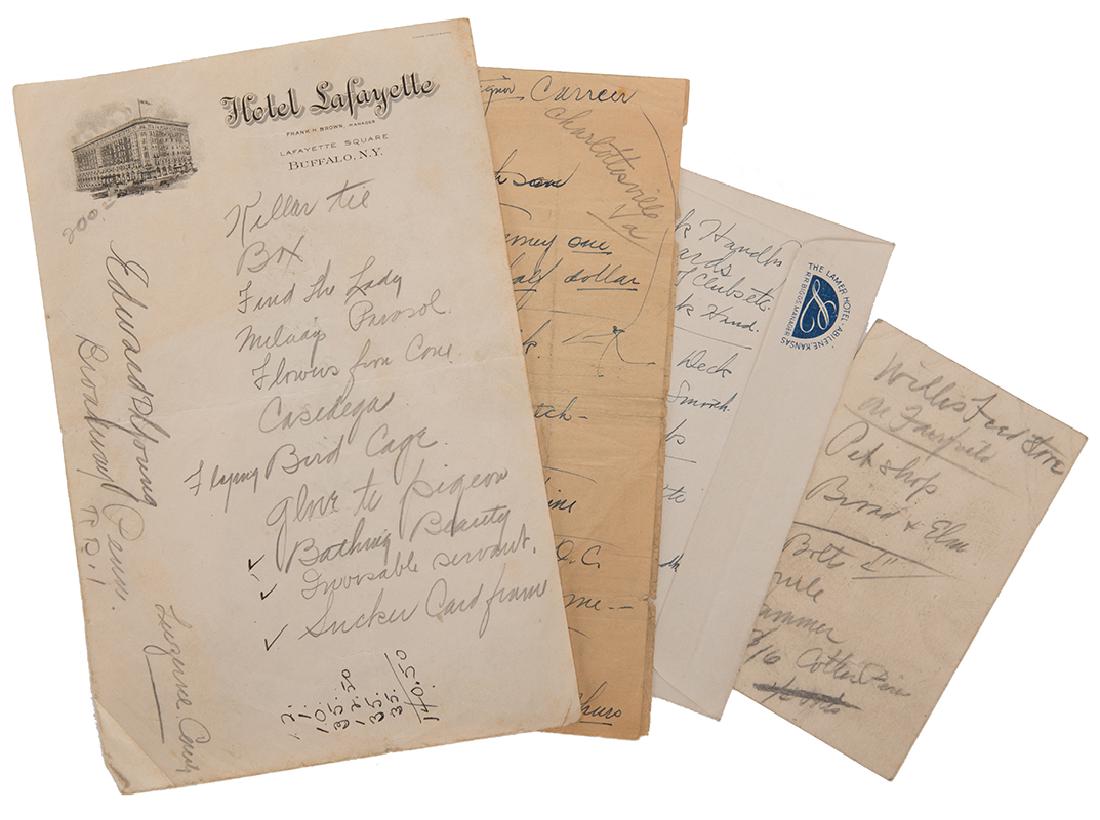 Hotel Lafayette
FRANK H. BROWN, MANAGER
LAFAYETTE SQUARE
BUFFALO, N.Y.
Killar tie
Box
Find the Lady
Parasol
Flowers from Cone
Casedega
Flying Bird Cage
glove to pigeon
✓ Bathing Beauty
✓ servant.
✓ Sucker Card frame
Edward DeYoung
Broadway Penn.
R D. 1
Luzerne County
2.
1.
10.
35.
2.50
35.
35.
140.50
Carreer
Charlottesville
Va
one
half dollar
k.
tch-
ine
O.C.
me-
k Handk
ards
of Clubs etc.
k Hand.
Deck
THE LAMER HOTEL - ABILENE KANSAS
R.R. BIGGS, MANAGER
Willis Feed Store
on Fairfield
Pet shop
Broad & Elm
Bolts 1"
rule
ammer
3/16 Cotter Pin